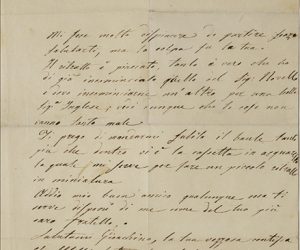 Mi fece molto dispiacere di partire senza
salutarti, ma la colpa fu la tua.
Il ritratto è piaciuto, tanto è vero che ho
di già incominciato quello del Sigr Novello
e devo incominciarne un altro per una bella
Sigra Inglese; vedi dunque che le cose non
vanno tanto male.
Ti prego di mandarmi subito il baule
che dentro vi è la cassetta in
la quale mi serve per fare un piccolo ritratto
in miniatura
Addio mio buon amico qualunque cosa ti
serve disponi di me come del tuo più
caro fratello.
Salutami Gioachino, la tua vezzosa